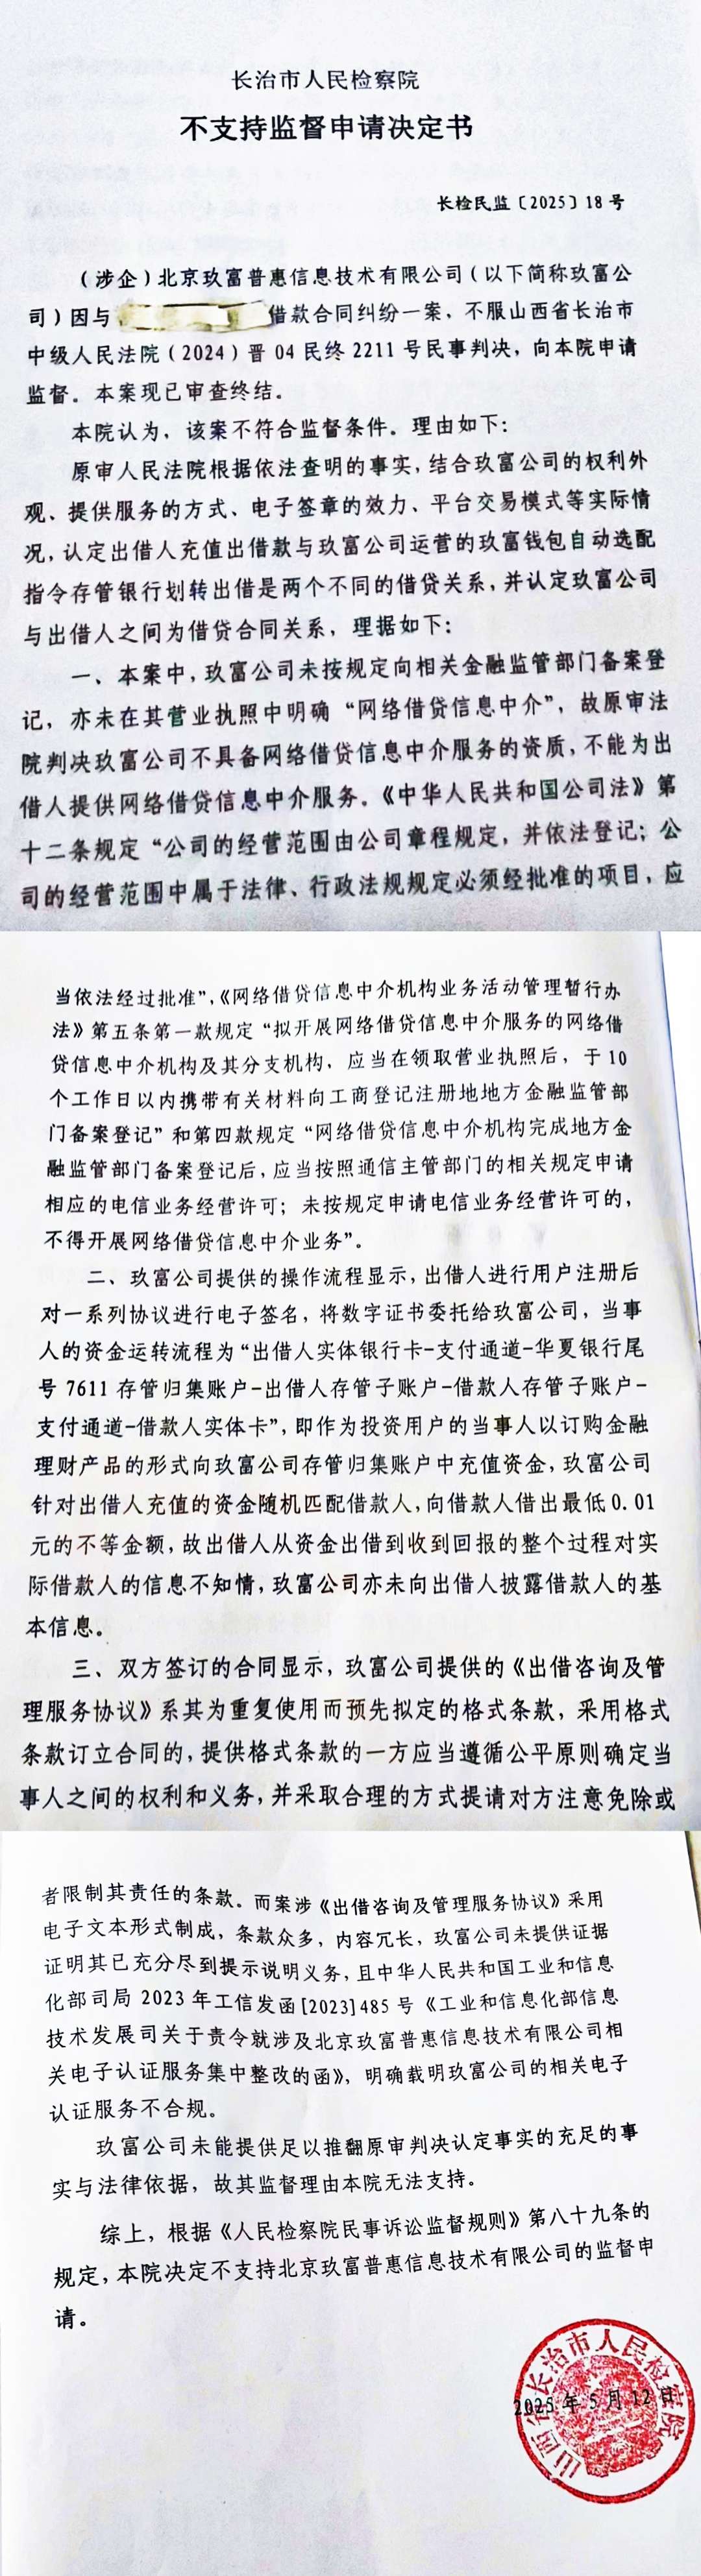 长治市人民检察院
不支持监督申请决定书
长检民监〔2025〕18号
（涉企）北京玖富普惠信息技术有限公司（以下简称玖富公
司）因与
借款合同纠纷一案，不服山西省长治市
中级人民法院（2024）晋04民终2211号民事判决，向本院申请
监督。本案现已审查终结。
本院认为，该案不符合监督条件。理由如下：
原审人民法院根据依法查明的事实，结合玖富公司的权利外
观、提供服务的方式、电子签章的效力、平台交易模式等实际情
况，认定出借人充值出借款与玖富公司运营的玖富钱包自动选配
指令存管银行划转出借是两个不同的借贷关系，并认定玖富公司
与出借人之间为借贷合同关系，理据如下：
一、本案中，玖富公司未按规定向相关金融监管部门备案登
记，亦未在其营业执照中明确“网络借贷信息中介”，故原审法
院判决玖富公司不具备网络借贷信息中介服务的资质，不能为出
借人提供网络借贷信息中介服务。《中华人民共和国公司法》第
十二条规定“公司的经营范围由公司章程规定，并依法登记；公
司的经营范围中属于法律、行政法规规定必须经批准的项目，应
当依法经过批准”，《网络借贷信息中介机构业务活动管理暂行办
法》第五条第一款规定“拟开展网络借贷信息中介服务的网络借
贷信息中介机构及其分支机构，应当在领取营业执照后，于10
个工作日以内携带有关材料向工商登记注册地地方金融监管部
门备案登记”和第四款规定“网络借贷信息中介机构完成地方金
融监管部门备案登记后，应当按照通信主管部门的相关规定申请
相应的电信业务经营许可；未按规定申请电信业务经营许可的，
不得开展网络借贷信息中介业务”。
二、玖富公司提供的操作流程显示，出借人进行用户注册后
对一系列协议进行电子签名，将数字证书委托给玖富公司，当事
人的资金运转流程为“出借人实体银行卡-支付通道-华夏银行尾
号7611存管归集账户-出借人存管子账户-借款人存管子账户-
支付通道-借款人实体卡”，即作为投资用户的当事人以订购金融
理财产品的形式向玖富公司存管归集账户中充值资金，玖富公司
针对出借人充值的资金随机匹配借款人，向借款人借出最低0.01
元的不等金额，故出借人从资金出借到收到回报的整个过程对实
际借款人的信息不知情，玖富公司亦未向出借人披露借款人的基
本信息。
三、双方签订的合同显示，玖富公司提供的《出借咨询及管
理服务协议》系其为重复使用而预先拟定的格式条款，采用格式
条款订立合同的，提供格式条款的一方应当遵循公平原则确定当
事人之间的权利和义务，并采取合理的方式提请对方注意免除或
者限制其责任的条款。而案涉《出借咨询及管理服务协议》采用
电子文本形式制成，条款众多，内容冗长，玖富公司未提供证据
证明其已充分尽到提示说明义务，且中华人民共和国工业和信息
化部司局2023年工信发函[2023]485号《工业和信息化部信息
技术发展司关于责令就涉及北京玖富普惠信息技术有限公司相
关电子认证服务集中整改的函》，明确载明玖富公司的相关电子
认证服务不合规。
玖富公司未能提供足以推翻原审判决认定事实的充足的事
实与法律依据，故其监督理由本院无法支持。
综上，根据《人民检察院民事诉讼监督规则》第八十九条的
规定，本院决定不支持北京玖富普惠信息技术有限公司的监督申
请。
山西省长治市人民检察院
2025年5月12日